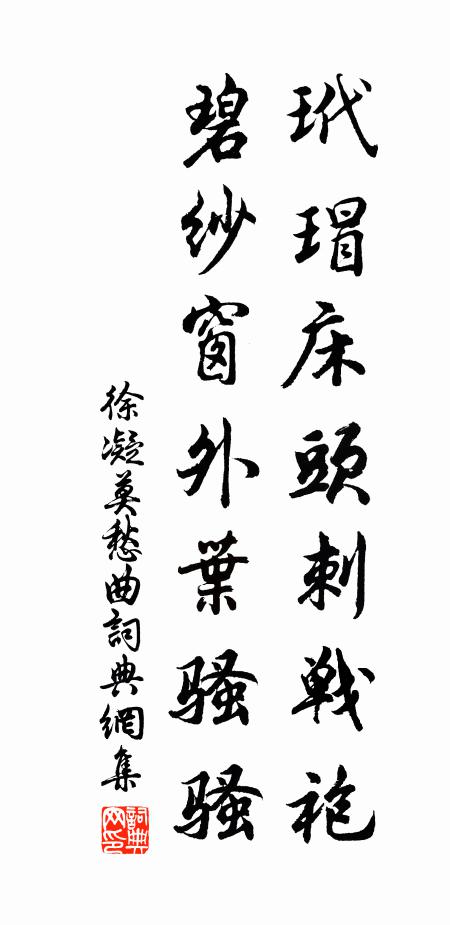 玳瑁床頭刺戦袍
碧紗窗外葉騷騷
徐凝莫愁曲詞典網集
詞典网印